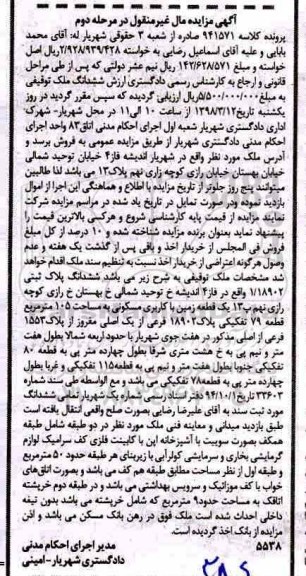 آگهی مزایده مال غیرمنقول در مرحله دوم
پرونده کلاسه ۹۴۱۵۷۱ صادره از شعبه ۳ حقوقی شهریار له: آقای محمد
بابایی و علیه آقای اسماعیل رضایی به خواسته ۲/۹۲۸/۹۳۹/۴۲۸ریال اصل
خواسته و مبلغ ۱۴۲/۶۲۸/۵۷۱ ریال نیم عشر دولتی که پس از طی مراحل
قانونی و ارجاع به کارشناس رسمی دادگستری ارزش ششدانگ ملک توقیفی
به مبلغ۵/۵۰۰/۰۰۰/۰۰۰ریال ارزیابی گردیده که سپس مقرر گردید در روز
یکشنبه تاریخ۱۳۹۸/۳/۱۲ از ساعت ۱۰ الی۱۱ در محل شهریار- شهرک
اداری دادگستری شهریار شعبه اول اجرای احکام مدنی اتاق۸۳ واحد اجرای
احکام مدنی دادگستری شهریار از طریق مزایده عمومی به فروش برسد و
آدرس ملک مورد نظر واقع در شهریار اندیشه فاز۴ خیابان توحید شمالی
خیابان بهستان خیابان رازی کوچه رازی نهم پلاک۱۳ می باشد لذا طالبین
میتوانند پنج روز جلوتر از تاریخ مزایده با اطلاع و هماهنگی این اجرا از اموال
بازدید نموده ودر صورت تمایل در تاریخ یاد شده در مراسم مزایده شرکت
نمایند مزایده از قیمت پایه کارشناسی شروع و هرکس بالاترین قیمت را
پیشنهاد نماید بعنوان برنده مزایده شناخته شده و ۱۰ درصد از کل مبلغ
فروش فی المجلس از خریدار اخذ و باقی پس از گذشت یک هفته و عدم
وصول هرگونه اعتراضی از خریدار اخذ نسبت به تنظیم سند ملک اقدام خواهد
شد مشخصات ملک توقیفی به شرح زیر می باشد ششدانگ پلاک ثبتی
۱/۱۸۹۰۲ واقع در فاز۴ اندیشه خ توحید شمالی خ بهستان خ رازی کوچه
رازی نهم پ۱۳ یک قطعه زمین با کاربری مسکونی به مساحت ۱۰۵ مترمربع
قطعه ۷۹ تفکیکی پلاک۱۸۹۰۲ فرعی از یک اصلی مفروز از پلاک۱۵۵۳
فرعی از اصلی مذکور در هفت جوی شهریار با حدود اربعه شمالا بطول هفت
متر و نیم پی به خ هشت متری شرقا بطول چهارده متر پی به قطعه ۸۰
تفکیکی جنوبا بطول هفت متر و نیم پی به قطعه۱۱۵ تفکیکی و غربا بطول
چهارده متر پی به قطعه۷۸ تفکیکی می باشد و مع الواسطه طی سند شماره
۳۳۶۰۳ تاریخ۹۴/۱۰/۱ دفتر اسناد رسمی شماره یک شهریار تمامی ششدانگ
مورد ثبت سند به آقای علیرضا رضایی بصورت صلح واقعی انتقال یافته است
طبق بازدید میدانی و معاینه فنی ملک مورد نظر در دو طبقه شامل طبقه
همکف بصورت سوییت با آشپزخانه اپن با کابینت فلزی کف سرامیک لوازم
گرمایشی بخاری و سرمایشی کولرآبی با زیربنای هر طبقه حدود ۵۰ مترمربع
و طبقه اول از نظر مساحت مطابق طبقه هم کف می باشد و بصورت اتاق‌های
خواب با کف موزائیک و سرویس بهداشتی می باشد و در طبقه دوم خرپشته
اتاقک به مساحت حدود۹ مترمربع که شامل خرپشته می باشد بدون تیغه
داخلی احداث شده است ملک فوق در رهن بانک مسکن می باشد و اذن
مزایده از بانک اخذ گردیده است.
۵۵۳۸ مدیر اجرای احکام مدنی
دادگستری شهریار-امینی